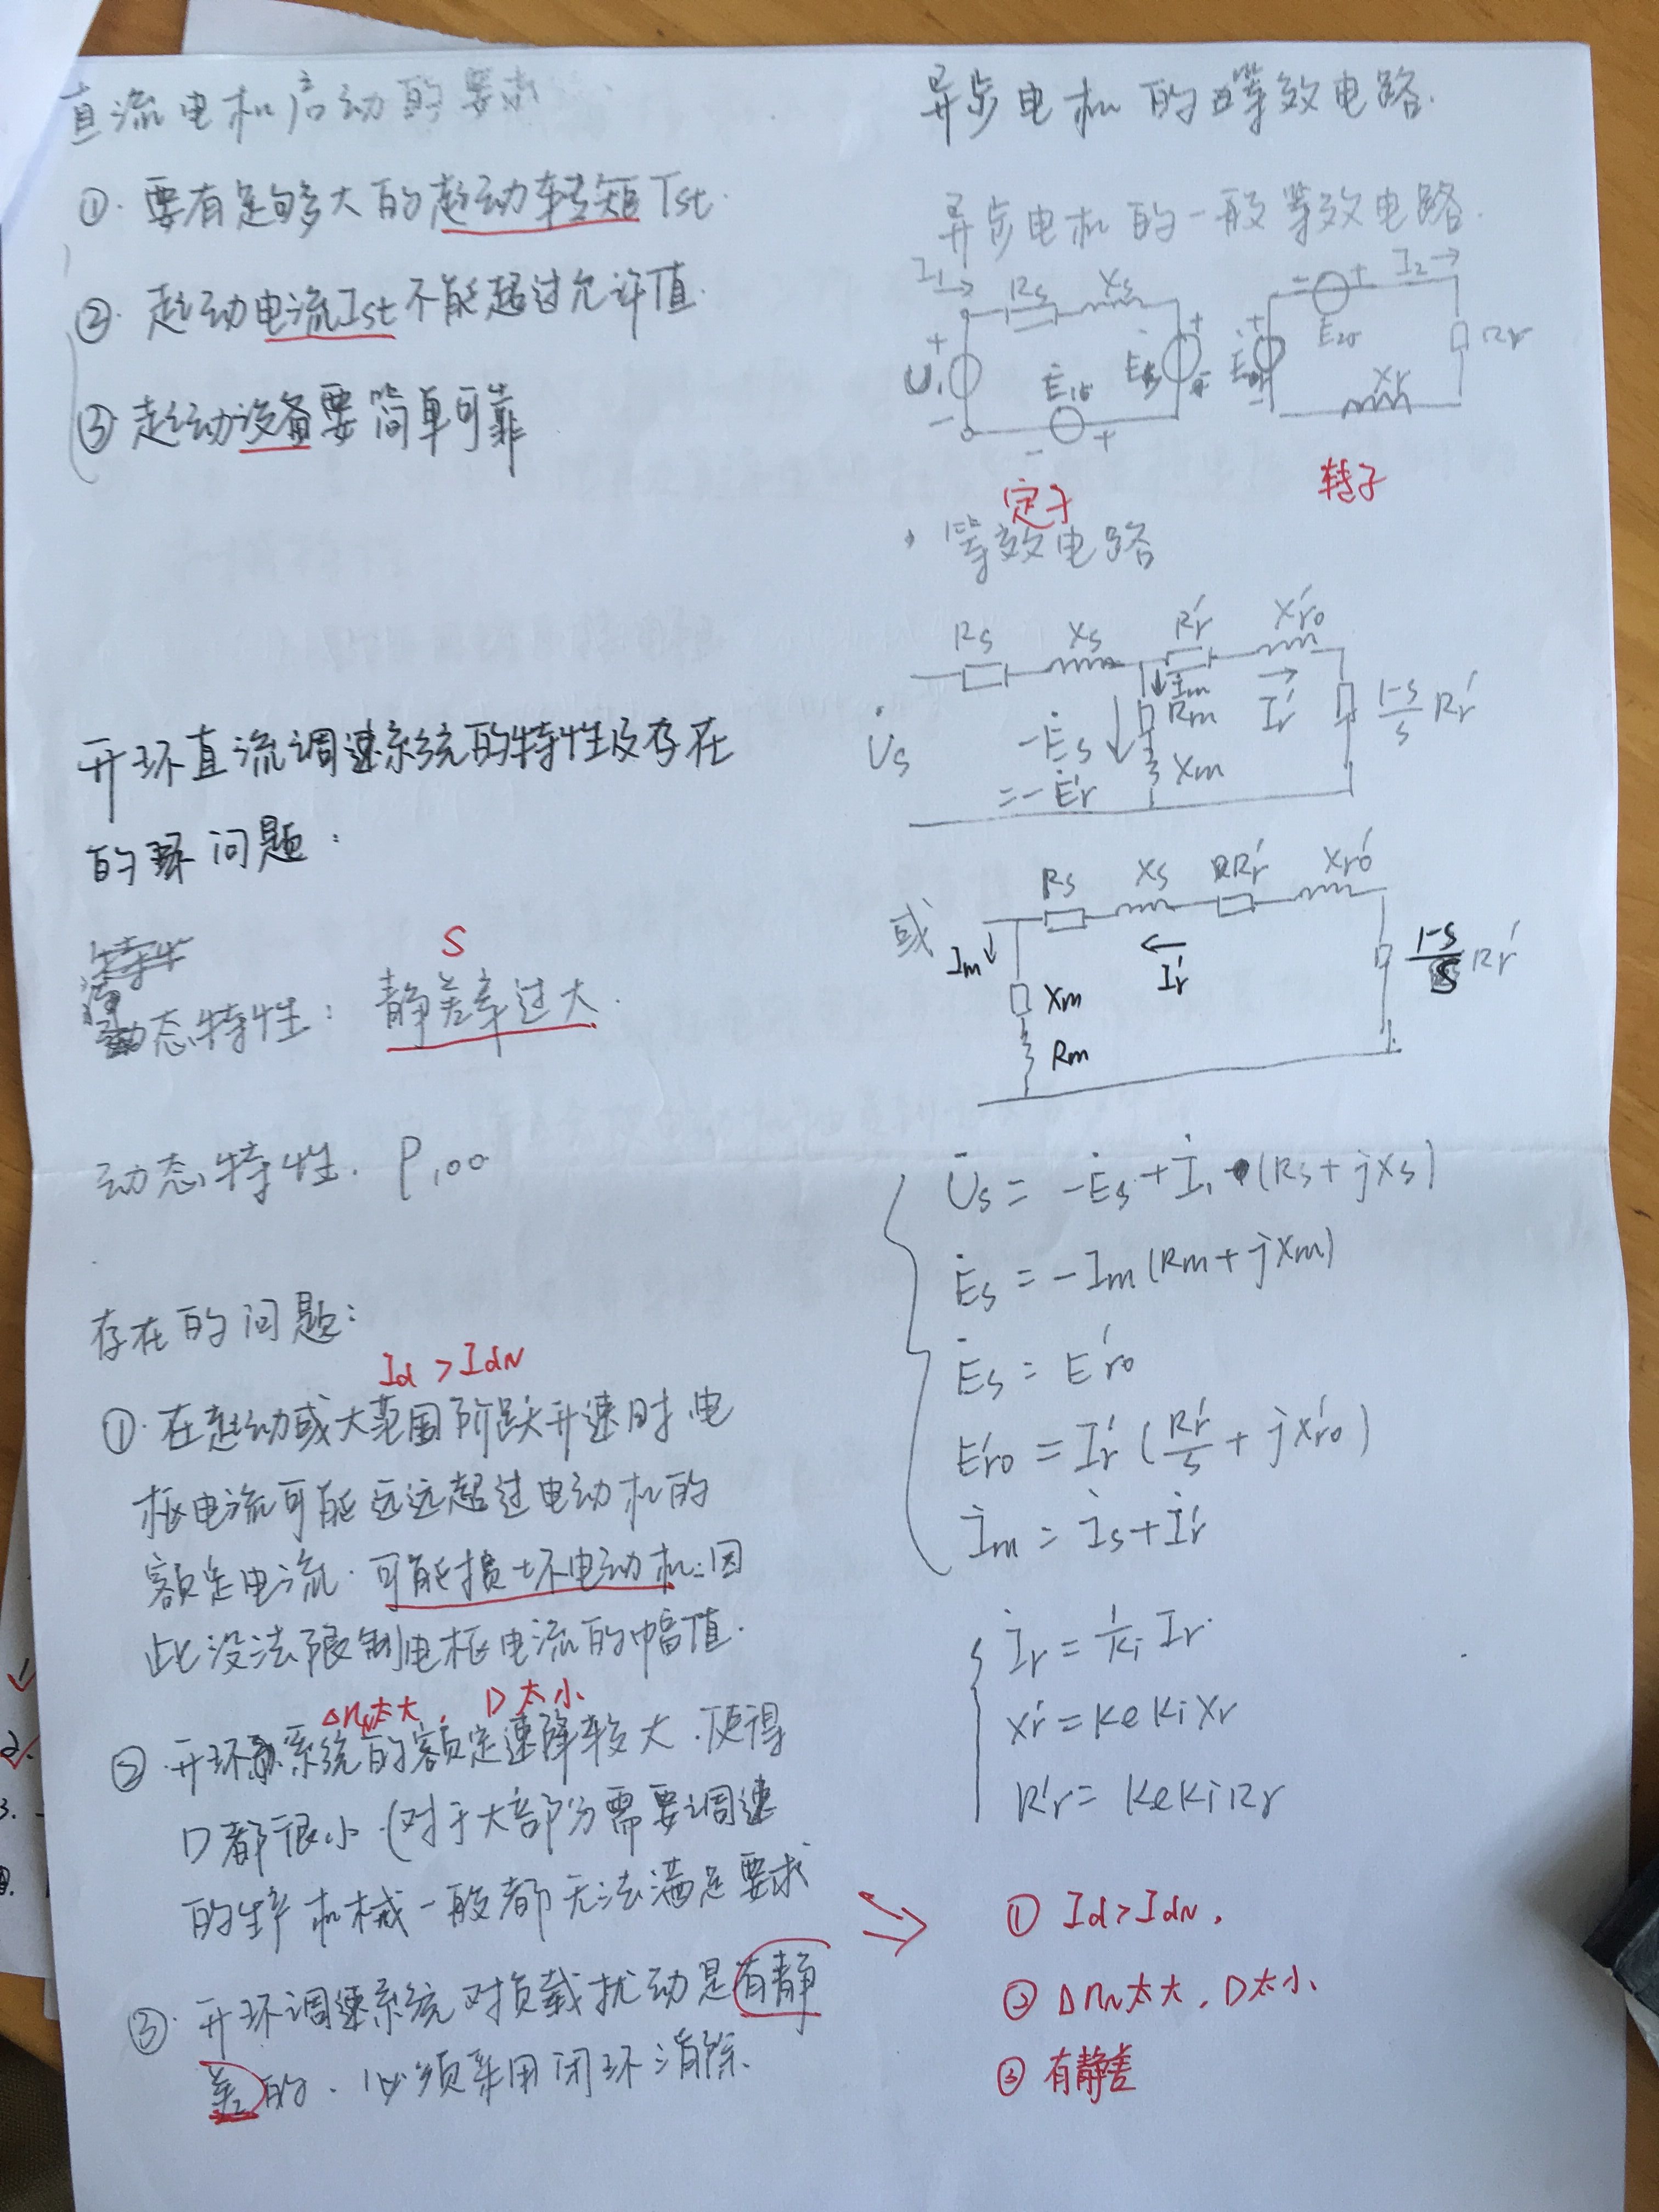 直流电机启动的要求
①. 要有足够大的起动转矩Tst.
②. 起动电流Ist不能超过允许值.
③ 起动设备要简单可靠
开环直流调速系统的特性及存在
的环问题:
S
态特性: 静差率过大.
动态特性. P100
存在的问题:
Id > IdN
①. 在起动或大范围阶跃升速时,电
枢电流可能远远超过电动机的
额定电流. 可能损坏电动机.因
此没法限制电枢电流的幅值.
Δn_N太大, D太小
② 开环系统的额定速降较大.使得
D都很小.(对于大部分需要调速
的生产机械一般都无法满足要求
③. 开环调速系统对负载扰动是有静
差的. 必须采用闭环消除.
异步电机的等效电路.
异步电机的一般等效电路.
I1→ Rs Xs
+ U1 -
- E1σ +
- E2σ + I2→
Rr
Xr
定子 转子
等效电路
Rs Xs Rr' Xr0'
U̇s -Ės = -Ėr' İm Rm Xm Ir' (1-s)/s Rr'
或 Rs Xs Rr' Xr0'
Im Xm Rm Ir' (1-s)/s Rr'
U̇s = -Ės + İ1 (Rs + jXs)
Ės = -Im (Rm + jXm)
Ės = Er0'
Er0' = Ir' (Rr'/s + jXr0')
İm = İs + İr'
İr = 1/ki Ir
Xr' = ke ki Xr
Rr' = ke ki Rr
① Id > IdN,
② Δn_N太大, D太小.
③ 有静差